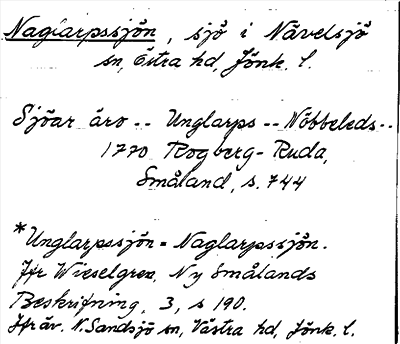 Naglarpssjön, sjö i Nävelsjö
sn, Östra hd, Jönk. l.
Sjöar äro -- Unglarps -- Nöbbeleds --
1770 Rogberg-Ruda,
Småland, s. 744
*Unglarpssjön = Naglarpssjön.
Jfr Wieselgren, Ny Smålands
Beskrifning, 3, s 190.
Jfr äv. N. Sandsjö sn, Västra hd, Jönk. l.